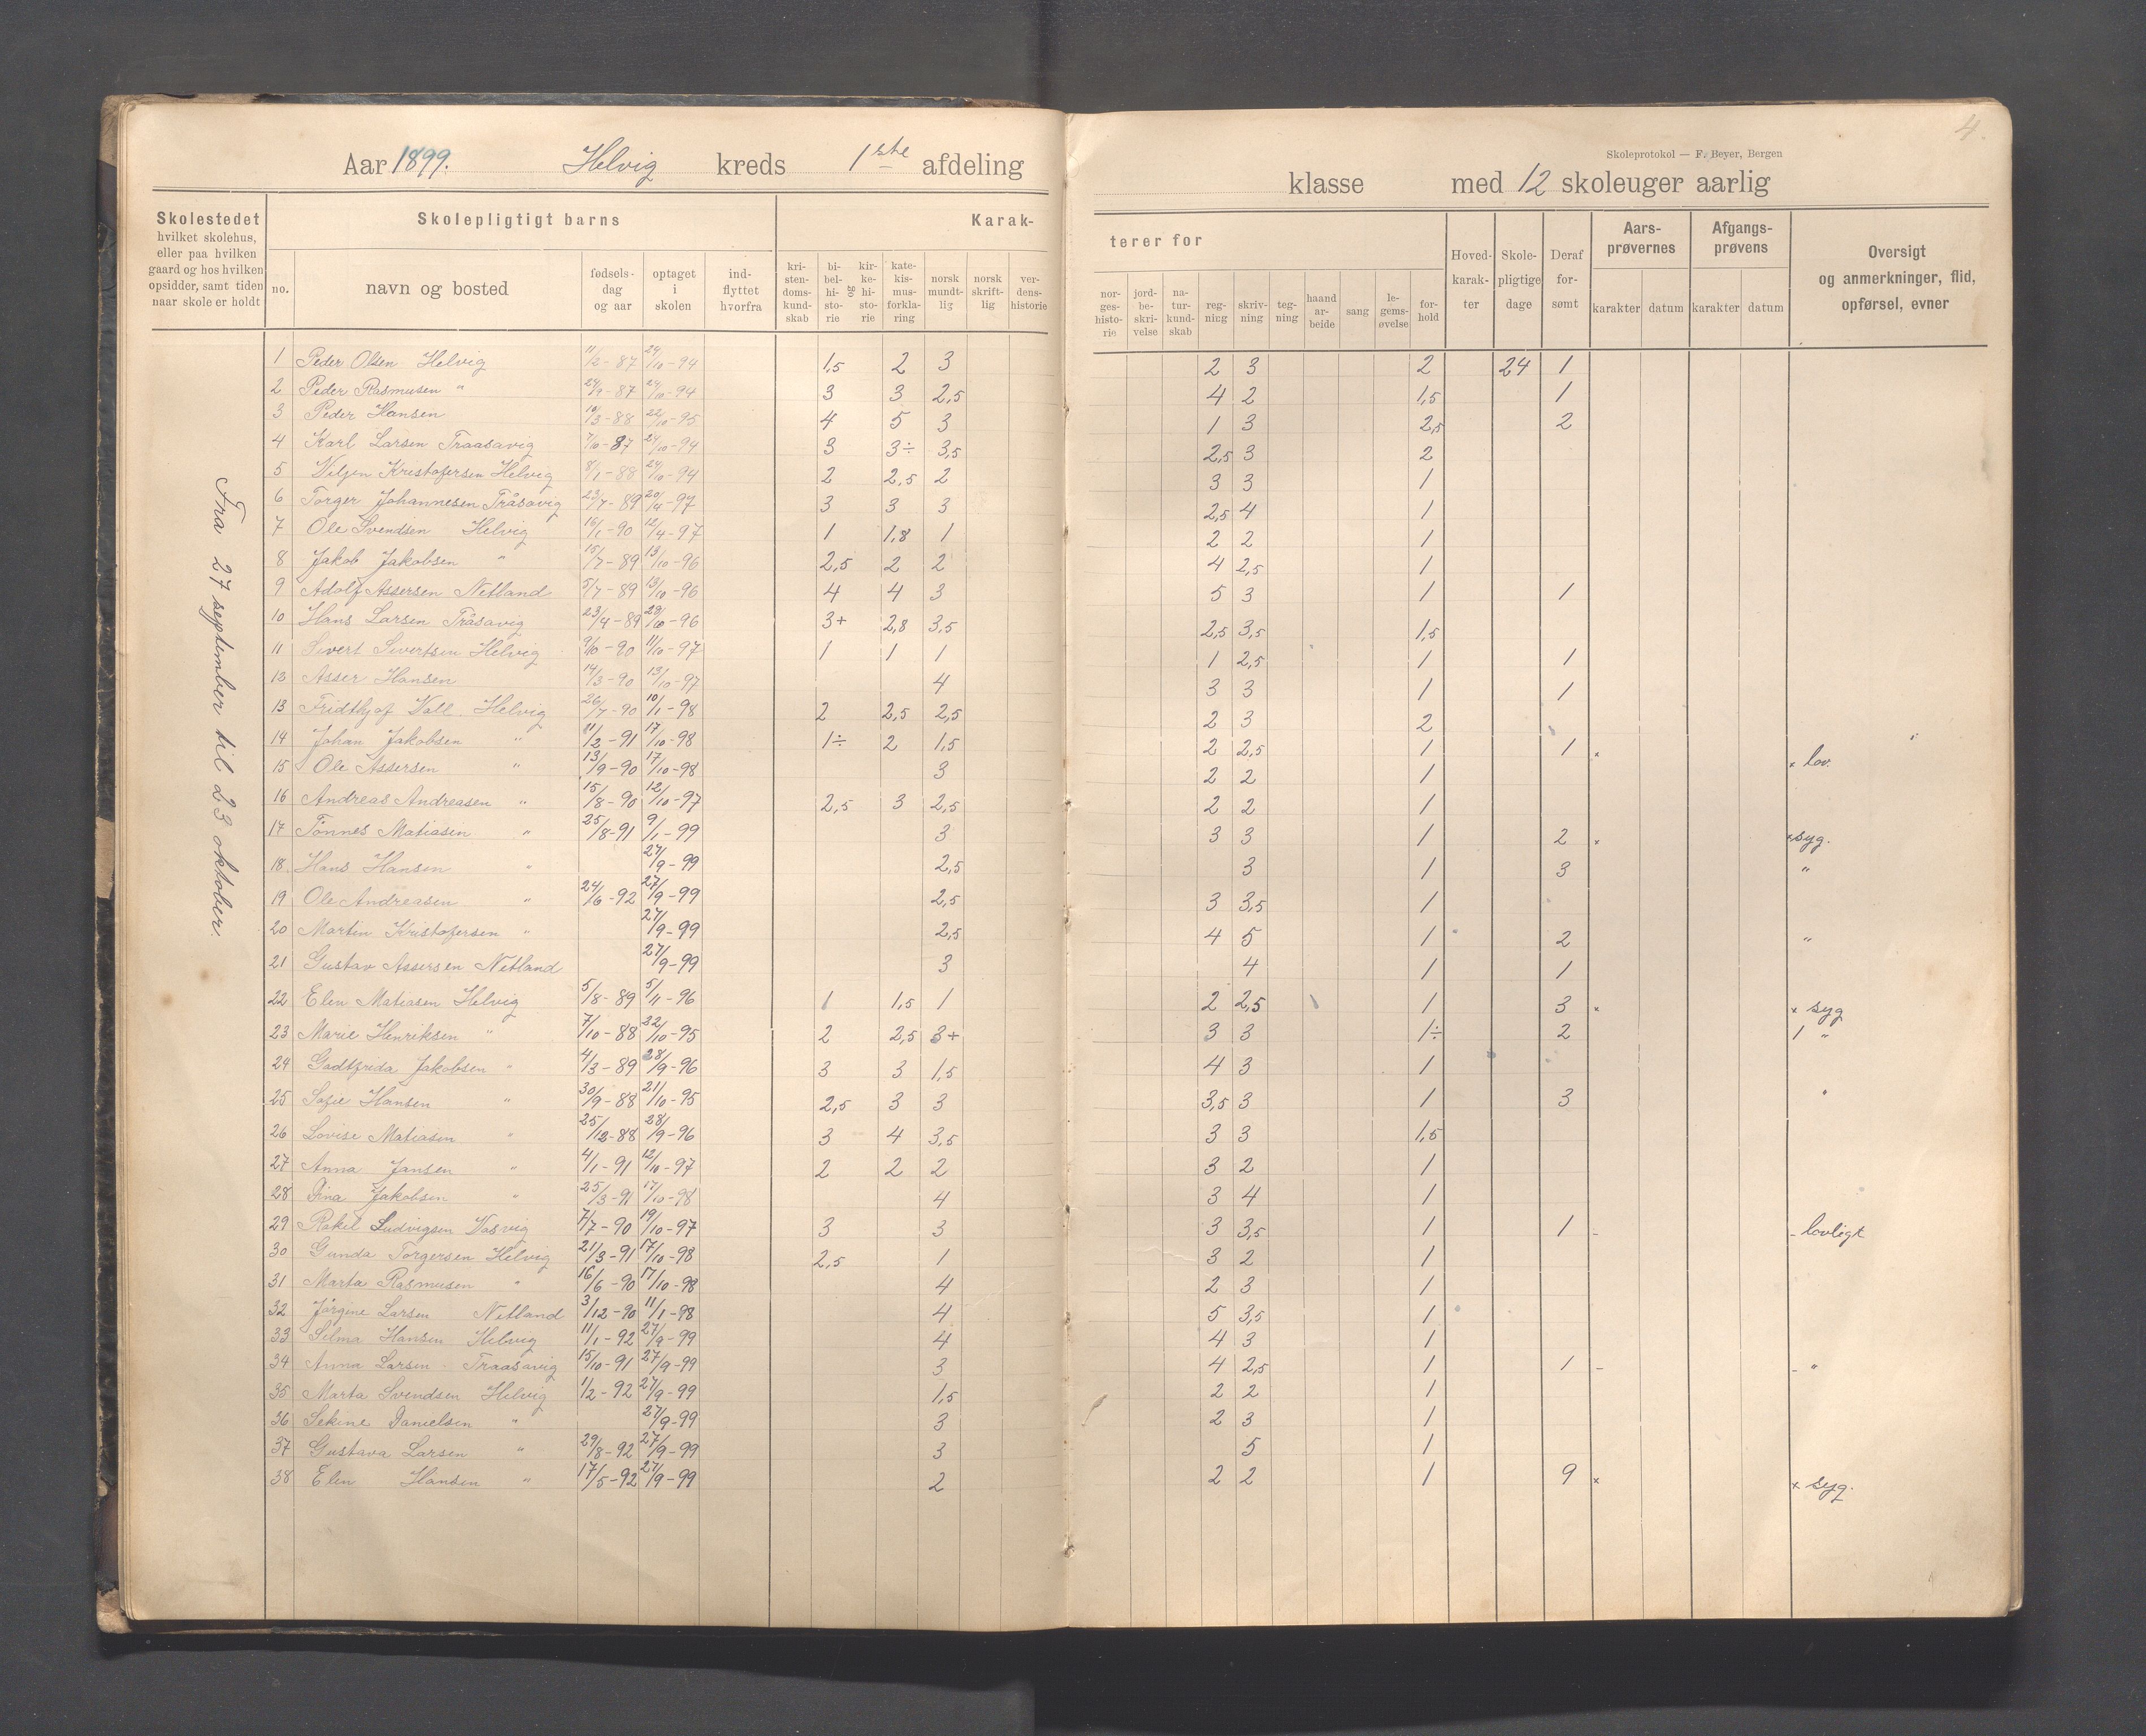 4.
Skoleprotokol — F. Beyer, Bergen
Aar 1899. Helvig kreds 1ste afdeling klasse med 12 skoleuger aarlig
Skolestedet hvilket skolehus, eller paa hvilken gaard og hos hvilken opsidder, samt tiden naar skole er holdt
Skolepligtigt barns
no. navn og bosted fødsels-dag og aar optaget i skolen ind-flyttet hvorfra
Karakterer for
kri-sten-doms-kund-skab bi-bel-hi-sto-rie og kir-ke-hi-sto-rie kate-kis-mus-forkla-ring norsk mundt-lig norsk skrift-lig ver-dens-historie
nor-ges-histo-rie jord-be-skri-velse na-tur-kund-skab reg-ning skriv-ning teg-ning haand ar-beide sang le-gems-øvelse for-hold
Hoved-karak-ter Skole-pligtige dage Deraf for-sømt
Aars-prøvernes karakter datum Afgangs-prøvens karakter datum
Oversigt og anmerkninger, flid, opførsel, evner
Fra 27 september til 23 oktober.
1 Peder Olsen Helvig 11/2-87 24/10-94 1,5 2 3 2 3 2 24 1
2 Peder Rasmusen " 24/9-87 24/10-94 3 3 2,5 4 2 1,5 1
3 Peder Hansen 10/3-88 22/10-95 4 5 3 1 3 2,5 2
4 Karl Larsen Traasavig 7/10-87 24/10-94 3 3÷ 3,5 2,5 3 2
5 Kristofersen Helvig 8/1-88 24/10-94 2 2,5 2 3 3 1
6 Torger Johannesen Tråsavig 23/7-89 20/4-97 3 3 3 2,5 4 1
7 Ole Svendsen Helvig 16/1-90 12/4-97 1 1,8 1 2 2 1
8 Jakob Jakobsen " 15/7-89 13/10-96 2,5 2 2 4 2,5 1
9 Adolf Assersen Netland 5/7-89 13/10-96 4 4 3 5 3 1 1
10 Hans Larsen Tråsavig 23/4-89 29/10-96 3+ 2,8 3,5 2,5 3,5 1,5
11 Sivert Sivertsen Helvig 9/10-90 11/10-97 1 1 1 1 2,5 1 1
12 Asser Hansen 14/3-90 13/10-97 4 3 3 1 1
13 Fridthjof Wall. Helvig 26/7-90 10/1-98 2 2,5 2,5 2 3 2
14 Johan Jakobsen " 11/2-91 17/10-98 1÷ 2 1,5 2 2,5 1 1 × × lov.
15 Ole Assersen " 13/9-90 17/10-98 3 2 2 1
16 Andreas Andreasen " 15/8-90 12/10-97 2,5 3 2,5 2 2 1
17 Tønnes Matiasin " 25/8-91 9/1-99 3 3 3 1 2 × × syg.
18. Hans Hansen " 27/9-99 2,5 3 1 3 "
19 Ole Andreasen " 24/6-92 27/9-99 2,5 3 3,5 1
20 Martin Kristofersen " 27/9-99 2,5 4 5 1 2 "
21 Gustav Assersen Netland 27/9-99 3 4 1 1
22 Elen Matiasen Helvig 5/8-89 5/11-96 1 1,5 1 2 2,5 1 3 × × syg
23 Marie Henriksen " 7/10-88 22/10-95 2 2,5 3+ 3 3 1÷ 2 1 "
24 Gadtfrida Jakobsen " 4/3-89 28/9-96 3 3 1,5 4 3 1
25 Sofie Hansen " 30/9-88 21/10-95 2,5 3 3 3,5 3 1 3 "
26 Lovise Matiasen " 25/12-88 28/9-96 3 4 3,5 3 3 1,5
27 Anna Jansen " 4/1-91 12/10-97 2 2 2 3 2 1
28 Jakobsen " 25/3-91 17/10-98 4 3 4 1
29 Rakel Ludvigsen Vasvig 7/7-90 19/10-97 3 3 3 3,5 1 1 - - lovligt
30 Gunda Torgersen Helvig 21/3-91 17/10-98 2,5 1 3 2 1
31 Marta Rasmusen " 16/6-90 17/10-98 4 2 3 1
32 Jørgine Larsen Netland 3/12-90 11/1-98 4 5 3,5 1
33 Selma Hansen Helvig 11/1-92 27/9-99 4 4 3 1
34 Anna Larsen Traasavig 15/10-91 27/9-99 3 4 2,5 1 1 - - "
35 Marta Svendsen Helvig 1/2-92 27/9-99 1,5 2 2 1
36 Sekine Danielsen " 27/9-99 3 2 3 1
37 Gustava Larsen " 29/8-92 27/9-99 3 5 1
38 Elen Hansen " 17/5-92 27/9-99 2 2 2 1 9 × × syg.